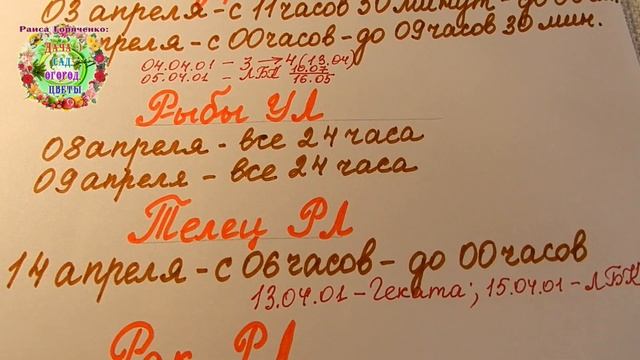 Раиса Горяченко:
ДАЧА
САД
ОГОРОД
ЦВЕТЫ
03 апреля - с 11 часов 30 минут - до
апреля - с 00 часов - до 09 часов 30 мин.
04.04.01 - 3 → 4 (13.04)
05.04.01 - ЛБК 16.05
Рыбы УЛ
08 апреля - все 24 часа
09 апреля - все 24 часа
Телец РЛ
14 апреля - с 06 часов - до 00 часов
13.04.01 - Геката; 15.04.01 - ЛБК
Рак РЛ